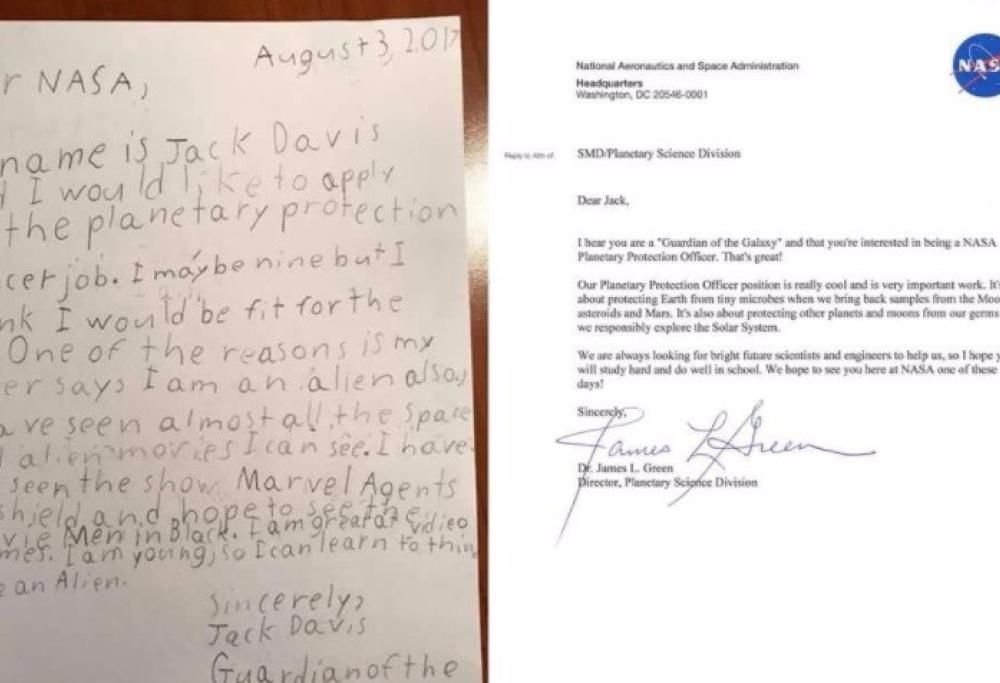 August 3, 2017
r NASA,
name is Jack Davis
I would like to apply
the planetary protection
cer job. I may be nine but I
nk I would be fit for the
One of the reasons is my
er says I am an alien also
ave seen almost all the space
alien movies I can see. I have
seen the show Marvel Agents
shield and hope to see the
vie Men in Black. I am great at vidieo
mes. I am young, so I can learn to thin
e an Alien.
Sincerely,
Jack Davis
Guardian of the
NAS
National Aeronautics and Space Administration
Headquarters
Washington, DC 20546-0001
Reply to Attn of:
SMD/Planetary Science Division
Dear Jack,
I hear you are a "Guardian of the Galaxy" and that you're interested in being a NASA
Planetary Protection Officer. That's great!
Our Planetary Protection Officer position is really cool and is very important work. It's
about protecting Earth from tiny microbes when we bring back samples from the Moo
asteroids and Mars. It's also about protecting other planets and moons from our germs
we responsibly explore the Solar System.
We are always looking for bright future scientists and engineers to help us, so I hope y
will study hard and do well in school. We hope to see you here at NASA one of these
days!
Sincerely,
James L Green
Dr. James L. Green
Director, Planetary Science Division